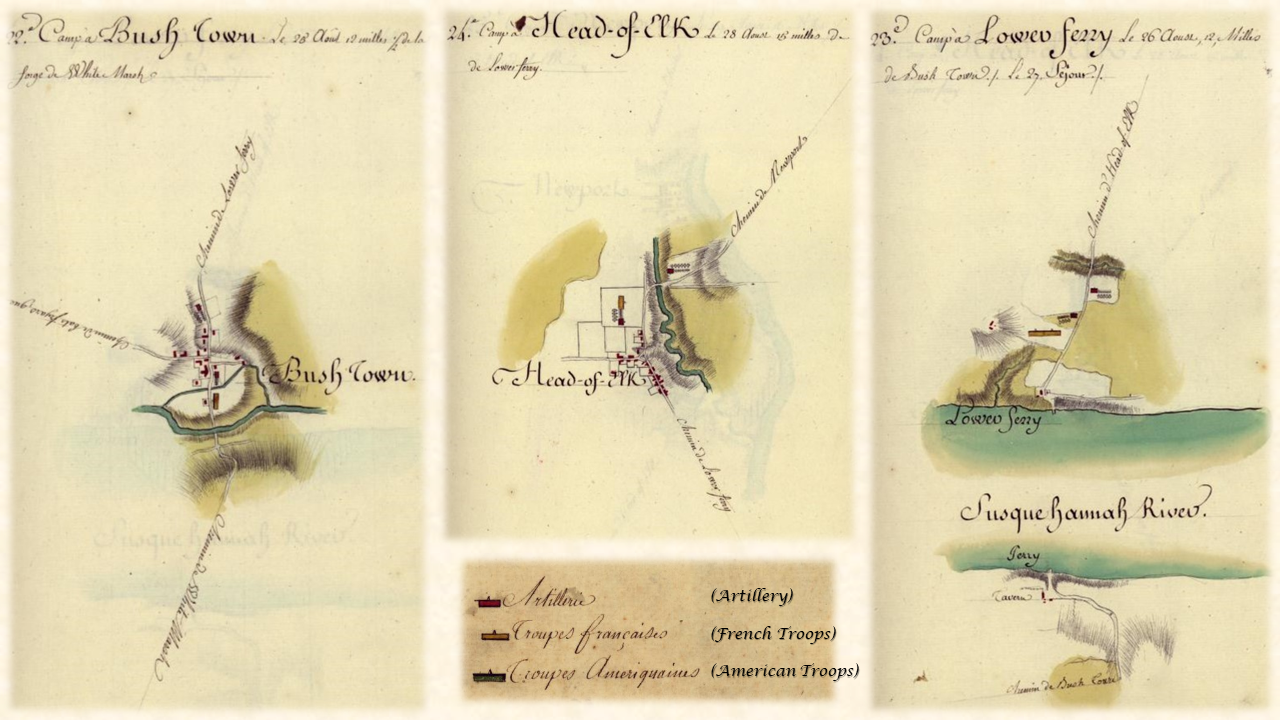 22.d Camp à Bush Town. Le 25 Août 12 milles ½ de la
forge de White Marsh
Chemin de Lower ferry
Bush Town.
Chemin de White Marsh
24.e Camp à Head-of-Elk Le 28 Aoust 15 milles de
de Lower ferry.
Newport
Chemin de Newport
Head-of-Elk
Chemin de Lower ferry
23.d Camp à Lower ferry Le 26 Aoust, 12, Milles
de Bush Town. /. Le 27. Séjour. /.
Chemin d'Head of Elk
Lower ferry
Susquehannah River.
Ferry
Tavern
Chemin de Bush Town
Susquehannah River.
Artillerie (Artillery)
Troupes françaises (French Troops)
Troupes Ameriquaines (American Troops)